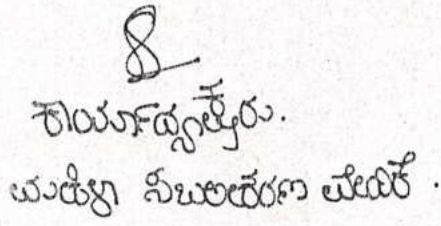 8
ಕಾರ್ಯಾಧ್ಯಕ್ಷೆರು.
ಮಹಿಳಾ ಸಬಲೀಕರಣ ವೇದಿಕೆ.